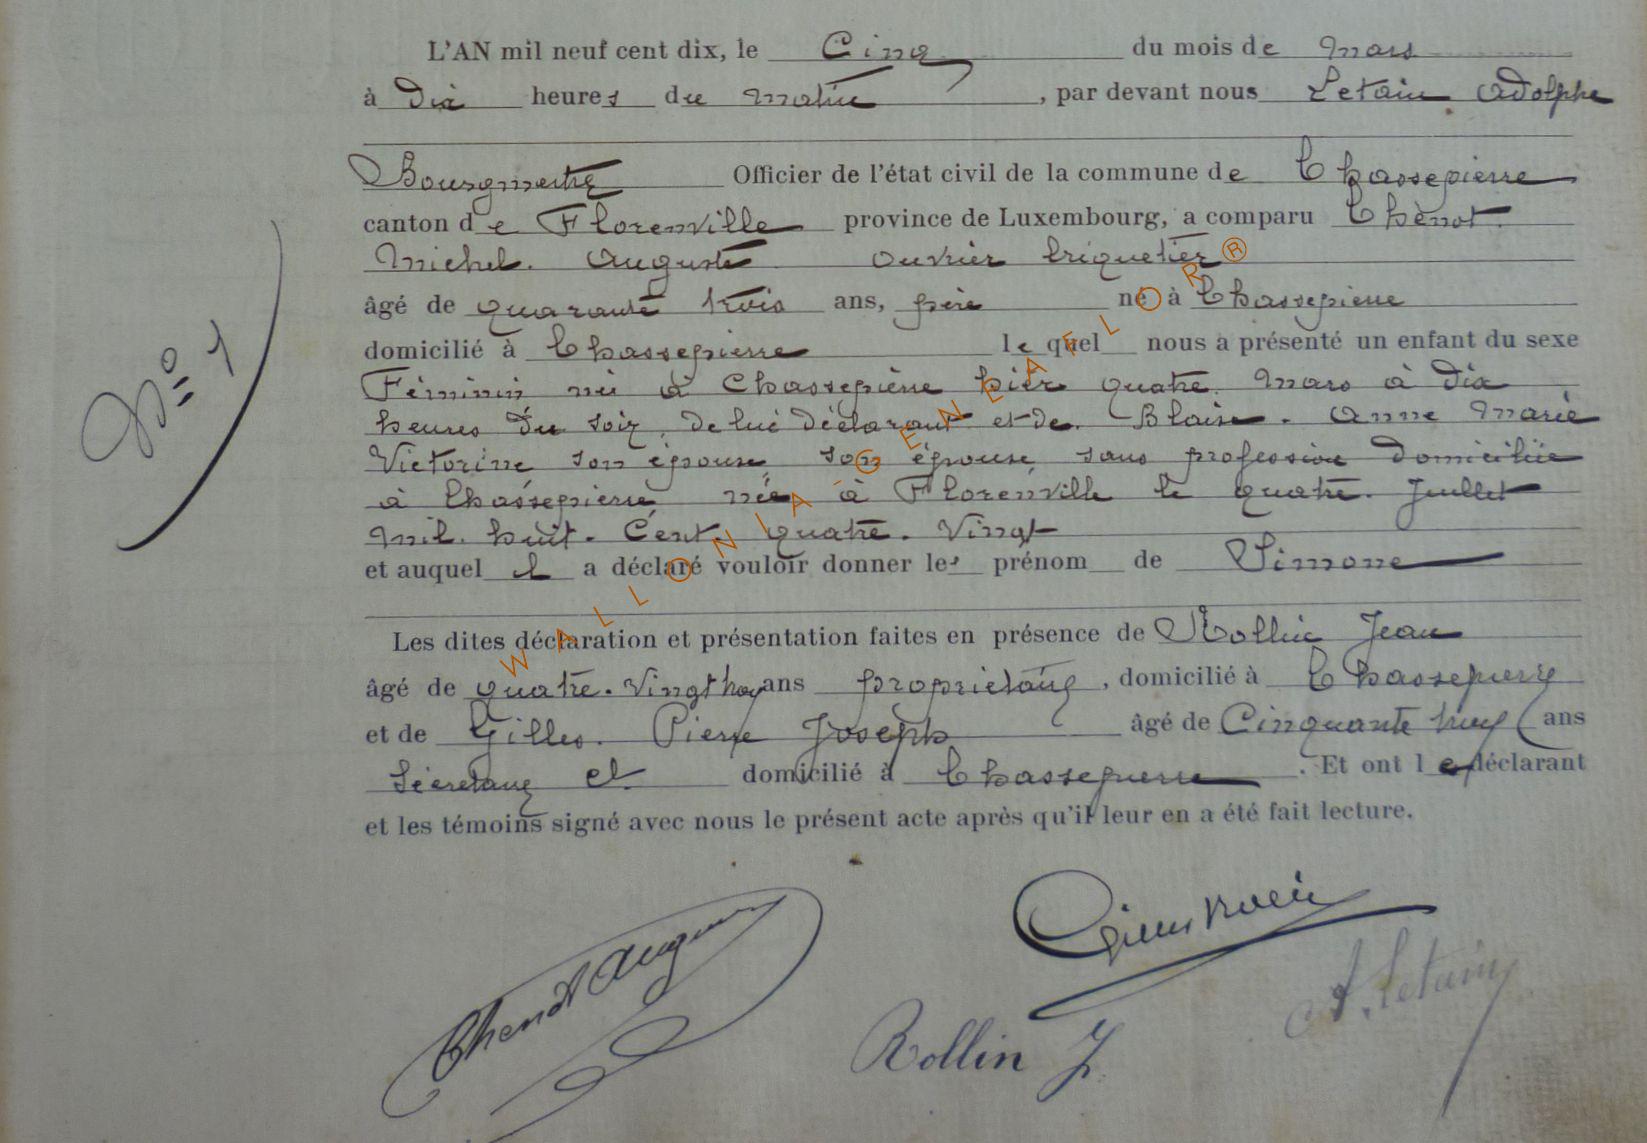 L'AN mil neuf cent dix, le Cinq du mois de Mars
à Dix heures du Matin, par devant nous Letain Adolphe
Bourgmestre Officier de l'état civil de la commune de Chassepierre
canton de Florenville province de Luxembourg, a comparu Chenot
Michel. Auguste ouvrier briquetier
âgé de quarante trois ans, père né à Chassepierre
domicilié à Chassepierre lequel nous a présenté un enfant du sexe
Féminin née à Chassepierre hier quatre Mars à Dix
heures Du soir, De lui déclarant et de. Blaise. Anne Marie
Victorine son épouse son épouse, sans profession Domiciliée
à Chassepierre, née à Florenville le quatre. Juillet
Mil. huit. Cent. quatre. Vingt
et auquel il a déclaré vouloir donner les prénom de Simone
Les dites déclaration et présentation faites en présence de Rollin Jean
âgé de quatre. Vingt ans propriétaire, domicilié à Chassepierre
et de Gilles. Pierre Joseph âgé de Cinquante ans
Sécretaire et domicilié à Chassepierre. Et ont le déclarant
et les témoins signé avec nous le présent acte après qu'il leur en a été fait lecture.
N° 1
WALLONIA-GENEALOR®
Chenot Auguste
Rollin J
A. Letain